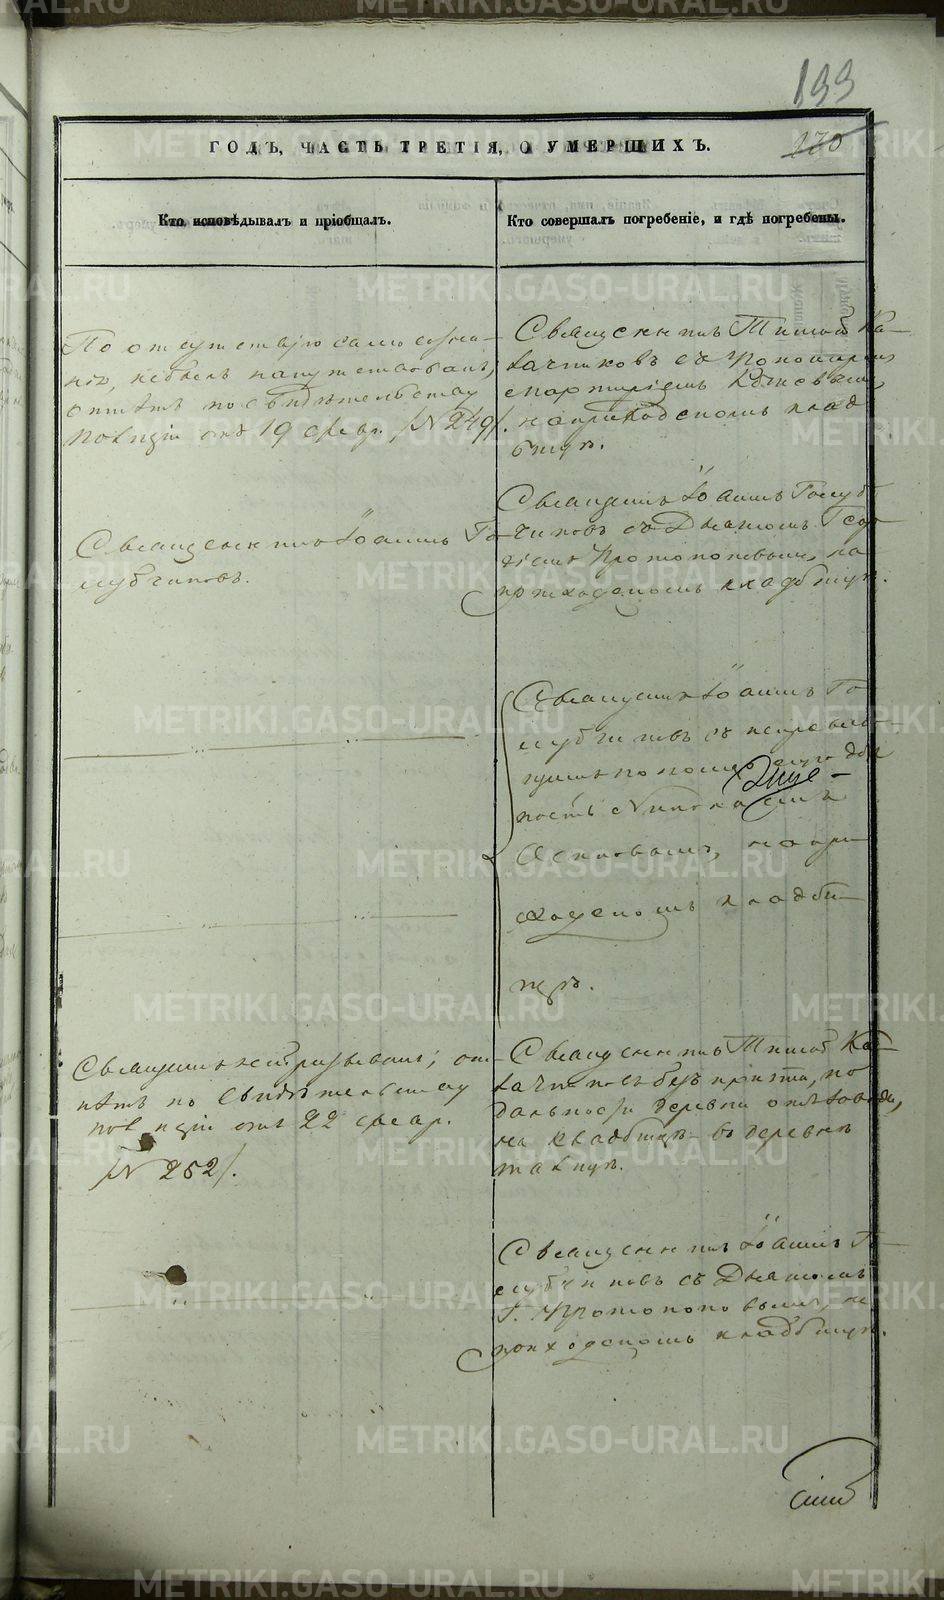 199
170
ГОДЪ, ЧАСТЬ ТРЕТІЯ, О УМЕРШИХЪ.
Кто исповѣдывалъ и пріобщалъ.
Кто совершалъ погребеніе, и гдѣ погребены.
По отсутствію само созна-
нія, небылъ напутствованъ,
отпѣтъ по свидѣтельству
полиціи отъ 19 февр. /№ 249/.
Священникъ Тимоѳ. Ка-
лачниковъ съ Пономаремъ
на приходскомъ клад
бищѣ.
Священникъ Іоаннъ Го-
лубчиковъ.
Священникъ Іоаннъ Голуб
чиковъ съ Дьякономъ Геор
гіемъ Протопоповымъ, на
приходскомъ кладбищѣ.
Священникъ Іоаннъ Го-
лубчиковъ съ исправля-
ющимъ пономар. долж
ность
Осиповымъ, на при
ходскомъ кладби-
щѣ.
Священникъ непризыванъ; от-
пѣтъ по свидѣтельству
полиціи отъ 22 февр.
/№ 252/.
Священникъ Тимоѳ. Ка-
лачниковъ безъ причта, по
дальности деревни отъ завода,
на кладбищѣ въ деревнѣ
Священникъ Іоаннъ Го-
лубчиковъ съ Дьякономъ
Г. Протопоповымъ, на
приходскомъ кладбищѣ.
METRIKI.GASO-URAL.RU